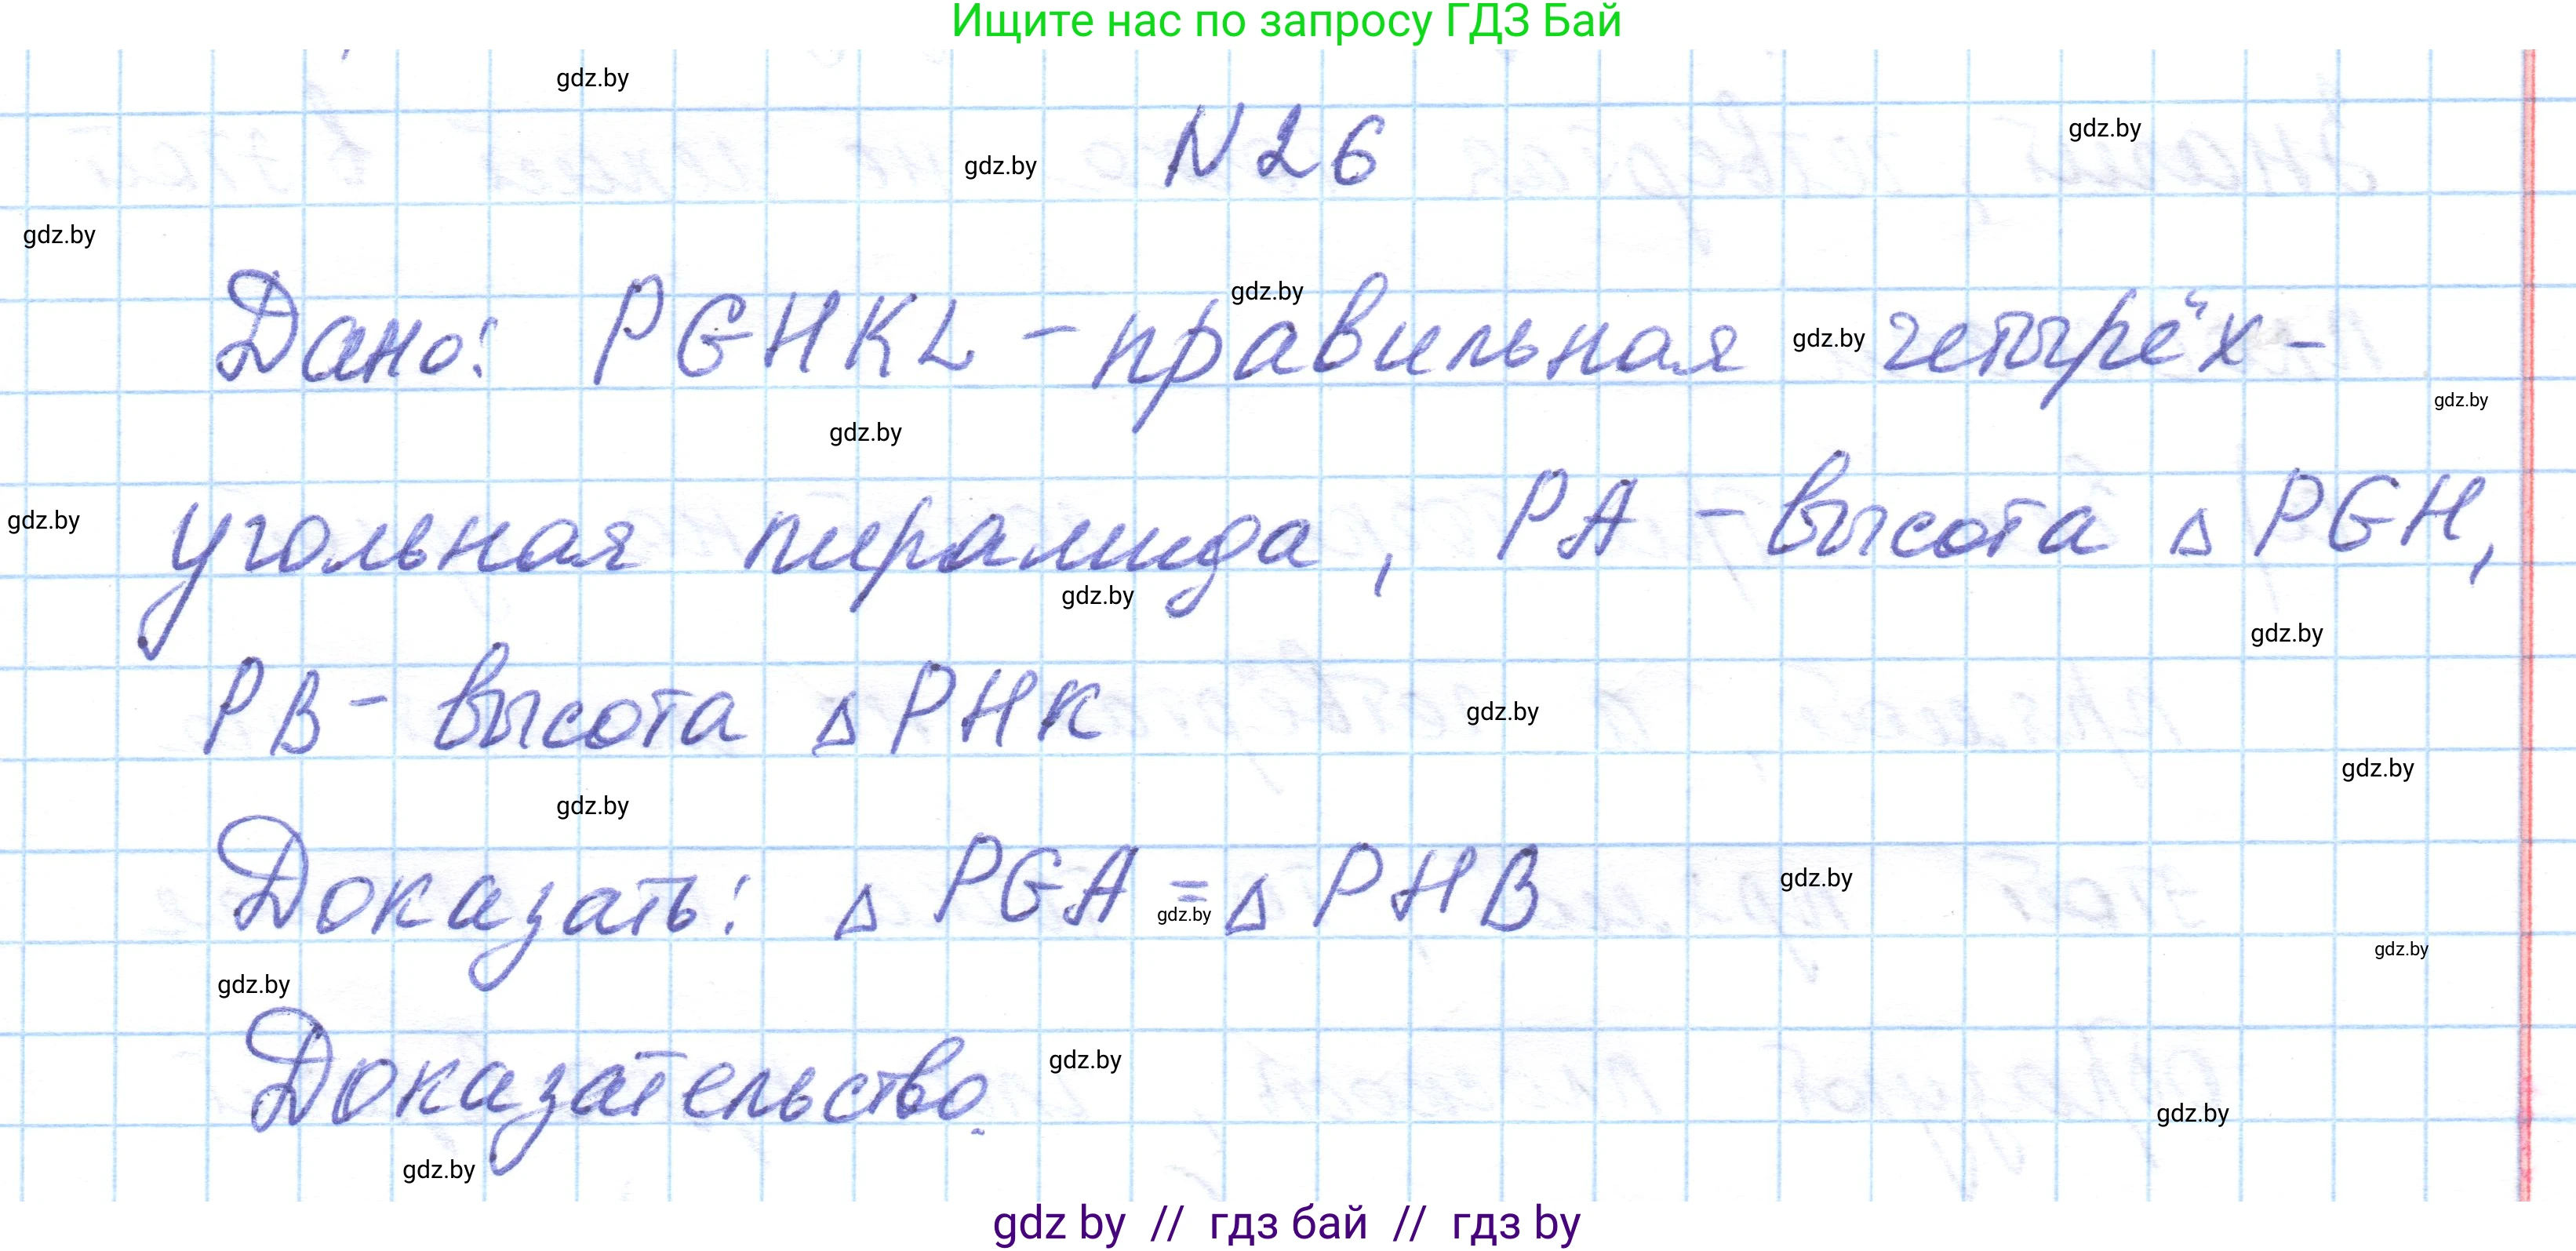 Ищите нас по запросу ГДЗ Бай
gdz.by
N 26
gdz.by
gdz.by
gdz.by
gdz.by
Дано: PGHKL - правильная четырёх-
gdz.by
gdz.by
gdz.by
угольная пирамида, PA - высота △ PGH,
gdz.by
gdz.by
gdz.by
PB - высота △ PHK
gdz.by
gdz.by
gdz.by
Доказать: △ PGA = △ PHB
gdz.by
gdz.by
gdz.by
gdz.by
Доказательство.
gdz.by
gdz.by
gdz.by
gdz by // гдз бай // гдз by